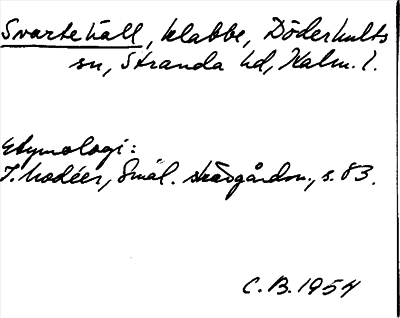 Svartehäll, klabbe, Döderhults
sn, Stranda hd, Kalm. l.
Etymologi:
I. Modéer, Smål. skärgårdsn., s. 83.
C.B. 1954